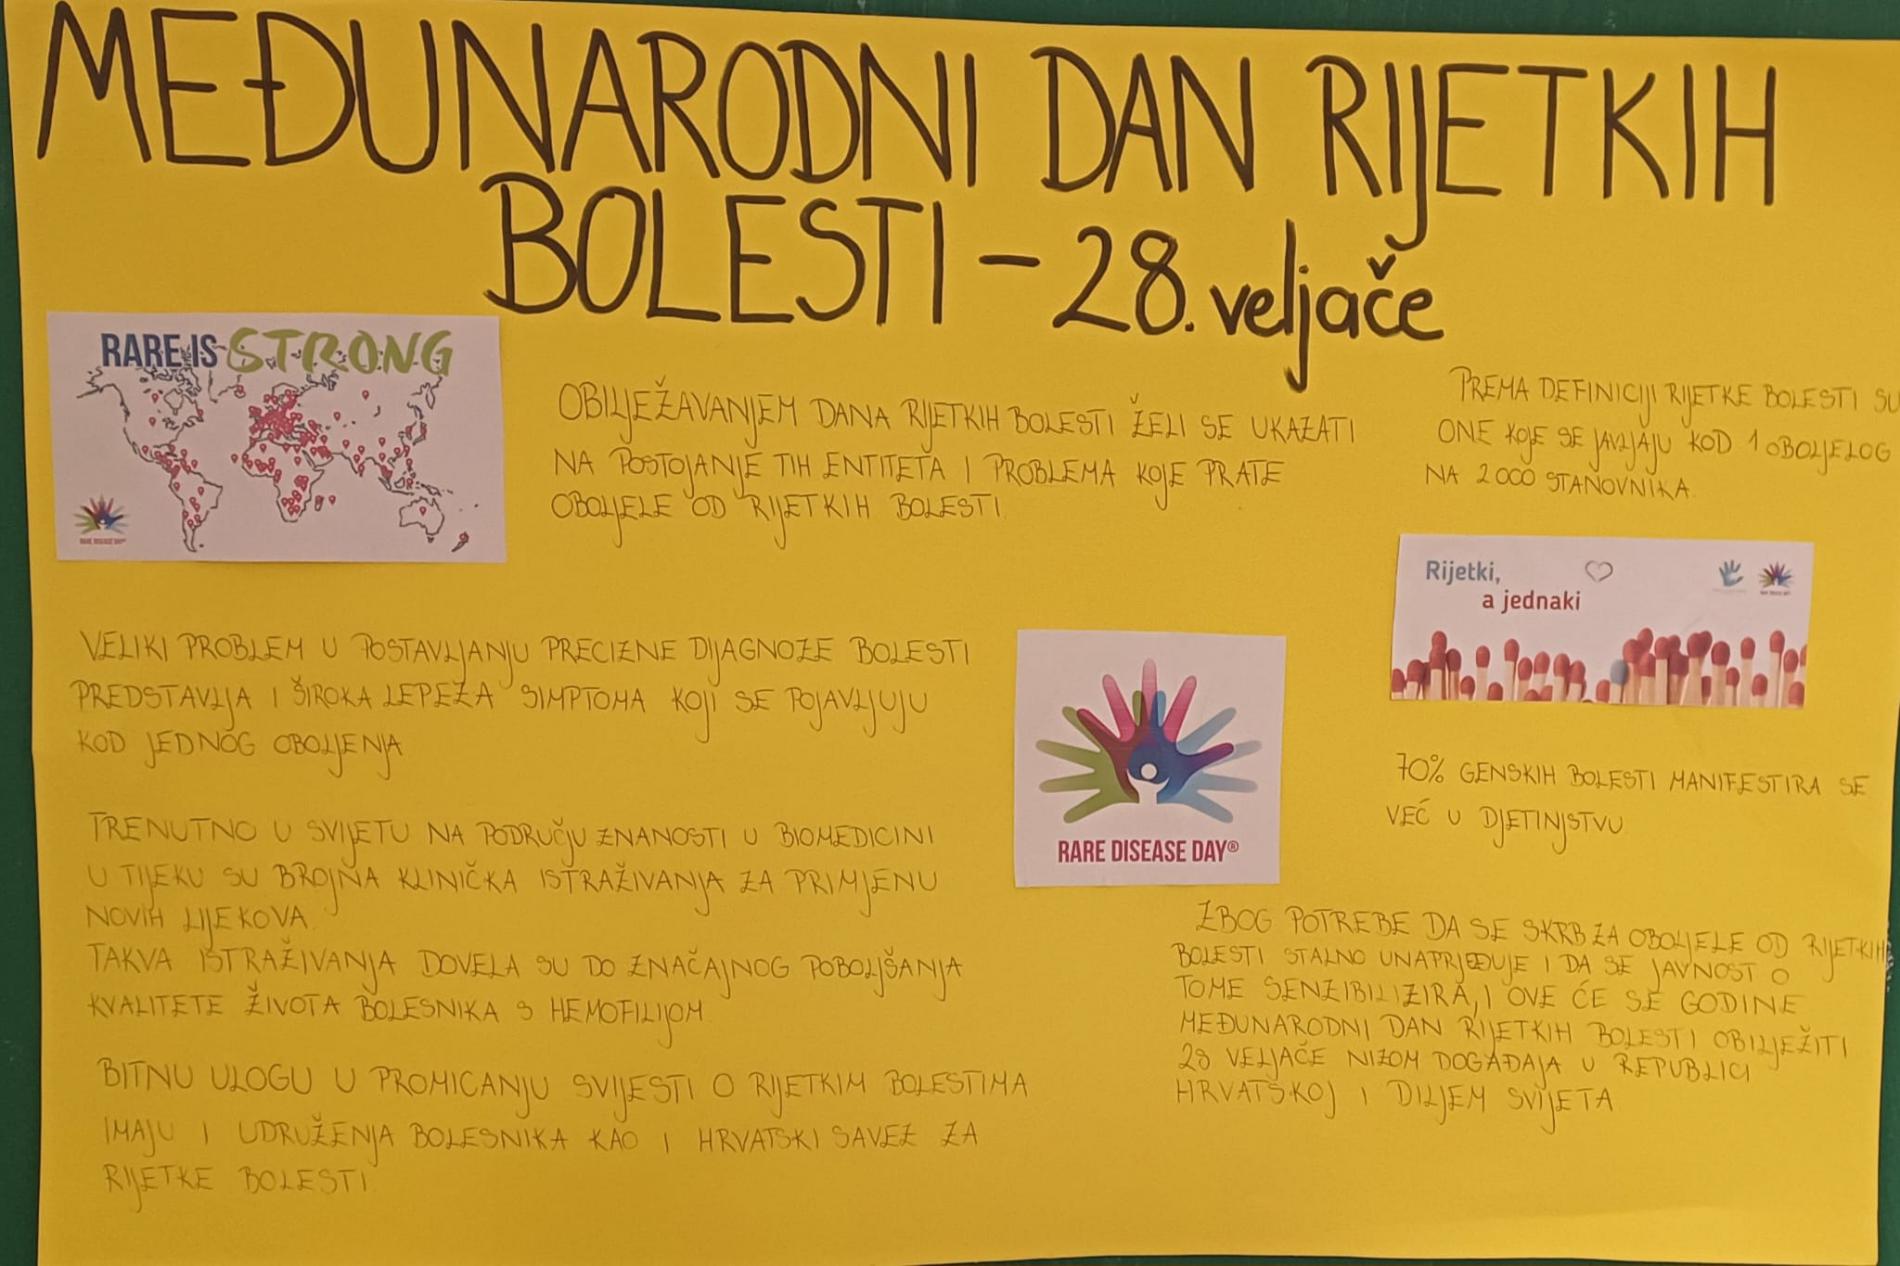 MEĐUNARODNI DAN RIJETKIH
BOLESTI – 28. veljače
RARE IS STRONG
RARE DISEASE DAY®
OBILJEŽAVANJEM DANA RIJETKIH BOLESTI ŽELI SE UKAZATI
NA POSTOJANJE TIH ENTITETA I PROBLEMA KOJE PRATE
OBOLJELE OD RIJETKIH BOLESTI.
PREMA DEFINICIJI RIJETKE BOLESTI SU
ONE KOJE SE JAVLJAJU KOD 1 OBOLJELOG
NA 2000 STANOVNIKA.
Rijetki,
a jednaki
VELIKI PROBLEM U POSTAVLJANJU PRECIZNE DIJAGNOZE BOLESTI
PREDSTAVLJA I ŠIROKA LEPEZA SIMPTOMA KOJI SE POJAVLJUJU
KOD JEDNOG OBOLJENJA
RARE DISEASE DAY®
70% GENSKIH BOLESTI MANIFESTIRA SE
VEĆ U DJETINJSTVU
TRENUTNO U SVIJETU NA PODRUČJU ZNANOSTI U BIOMEDICINI
U TIJEKU SU BROJNA KLINIČKA ISTRAŽIVANJA ZA PRIMJENU
NOVIH LIJEKOVA.
TAKVA ISTRAŽIVANJA DOVELA SU DO ZNAČAJNOG POBOLJŠANJA
KVALITETE ŽIVOTA BOLESNIKA S HEMOFILIJOM.
BITNU ULOGU U PROMICANJU SVIJESTI O RIJETKIM BOLESTIMA
IMAJU I UDRUŽENJA BOLESNIKA KAO I HRVATSKI SAVEZ ZA
RIJETKE BOLESTI.
ZBOG POTREBE DA SE SKRB ZA OBOLJELE OD RIJETKIH
BOLESTI STALNO UNAPRJEĐUJE I DA SE JAVNOST O
TOME SENZIBILIZIRA, I OVE ĆE SE GODINE
MEĐUNARODNI DAN RIJETKIH BOLESTI OBILJEŽITI
28 VELJAČE NIZOM DOGAĐAJA U REPUBLICI
HRVATSKOJ I DILJEM SVIJETA